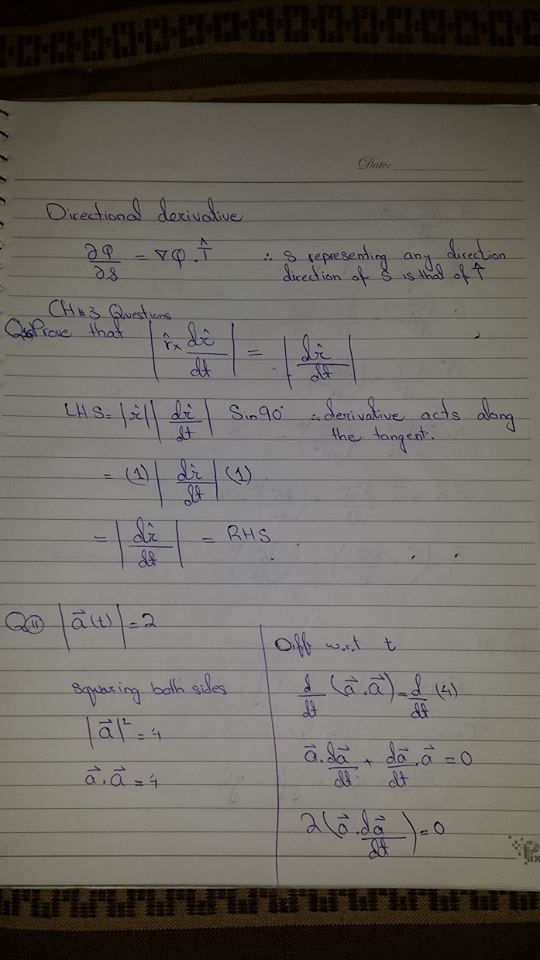 Date:
Directional derivative
∂φ/∂s = ∇φ . T̂ ∴ s representing any direction
direction of s is that of T̂
CH#3 Questions
Prove that | r̂ × dr̂/dt | = | dr̂/dt |
LHS = |r̂| | dr̂/dt | Sin90° ∴ derivative acts along
the tangent.
= (1) | dr̂/dt | (1)
= | dr̂/dt | = RHS
Q⑪ | a⃗(t) | = 2
squaring both sides
| a⃗ |² = 4
a⃗ . a⃗ = 4
Diff w.r.t t
d/dt (a⃗ . a⃗) = d/dt (4)
a⃗ . da⃗/dt + da⃗/dt . a⃗ = 0
2(a⃗ . da⃗/dt) = 0